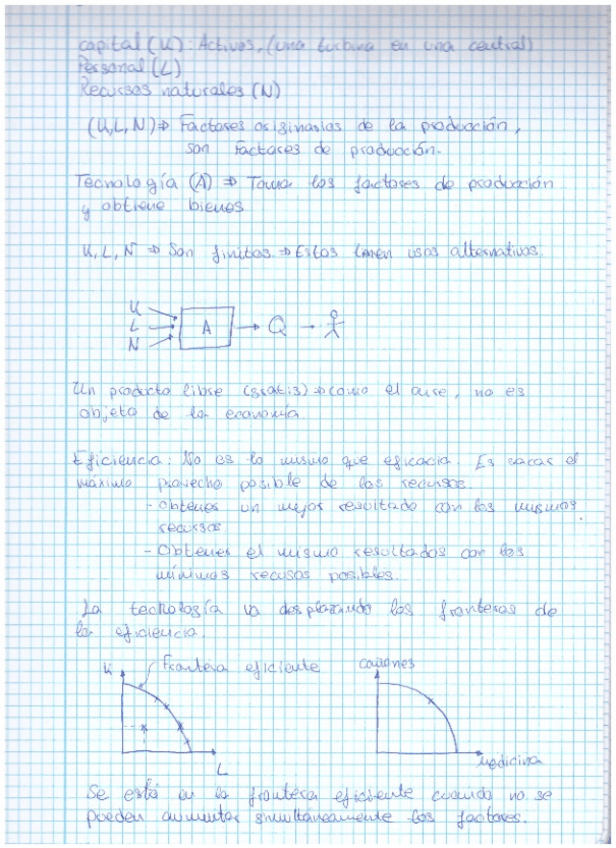 capital (K): Activos, (una turbina en una central)
Personal (L)
Recursos naturales (N)
(K,L,N) ⇒ Factores originarios de la producción,
son factores de producción.
Tecnología (A) ⇒ Toma los factores de producción
y obtiene bienes
K, L, N ⇒ Son finitos ⇒ Estos tienen usos alternativos.
K
L
N
A
Q
Un producto libre (gratis) ⇒ como el aire, no es
objeto de la economía
Eficiencia: No es lo mismo que eficacia. Es sacar el
máximo provecho posible de los recursos.
- obtener un mejor resultado con los mismos
recursos
- Obtener el mismo resultados con los
mínimos recusos posibles.
La tecnología va desplazando las fronteras de
la eficiencia.
K
Frontera eficiente
L
cañones
Medicina
Se está en la frontera eficiente cuando no se
pueden aumentar simultaneamente los factores.